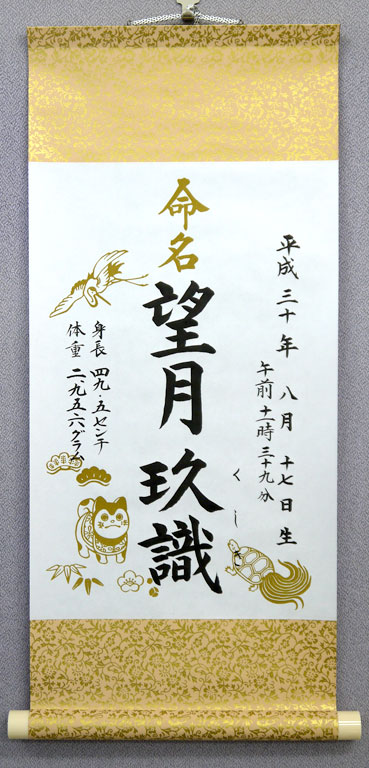 平成三十年 八月 十七日生
午前 十一時 三十九分
命名
望月 玖識
くし
身長 四九・五センチ
体重 二九五六グラム